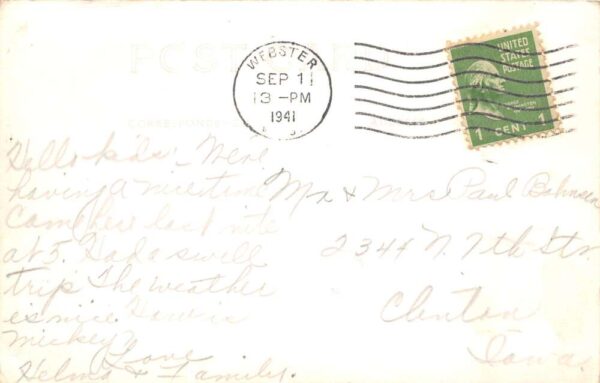 POST CARD
WEBSTER
SEP 11
13-PM
1941
UNITED
STATES
POSTAGE
1 CENT 1
CORRESPONDENCE
Hello kids - Were
having a nice time
Came here last nite
at 5. Had a swell
trip The weather
is nice How is
Mickey
Love
Helma & Family.
Mr & Mrs Paul Bohnsen
2344 N. 7th Str
Clinton
Iowa.